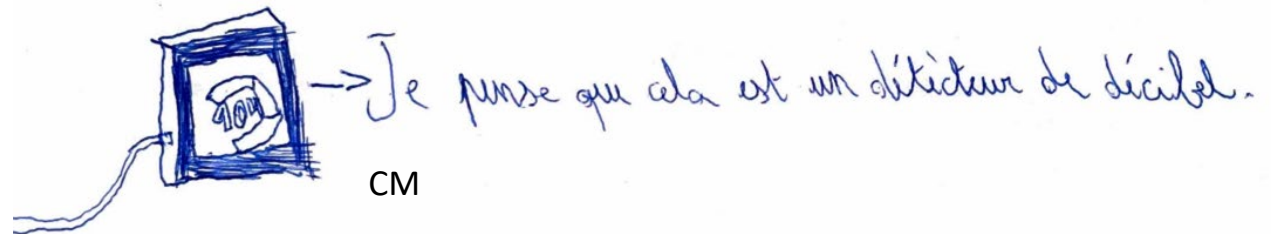 104
Je pense que cela est un détecteur de décibel.
CM